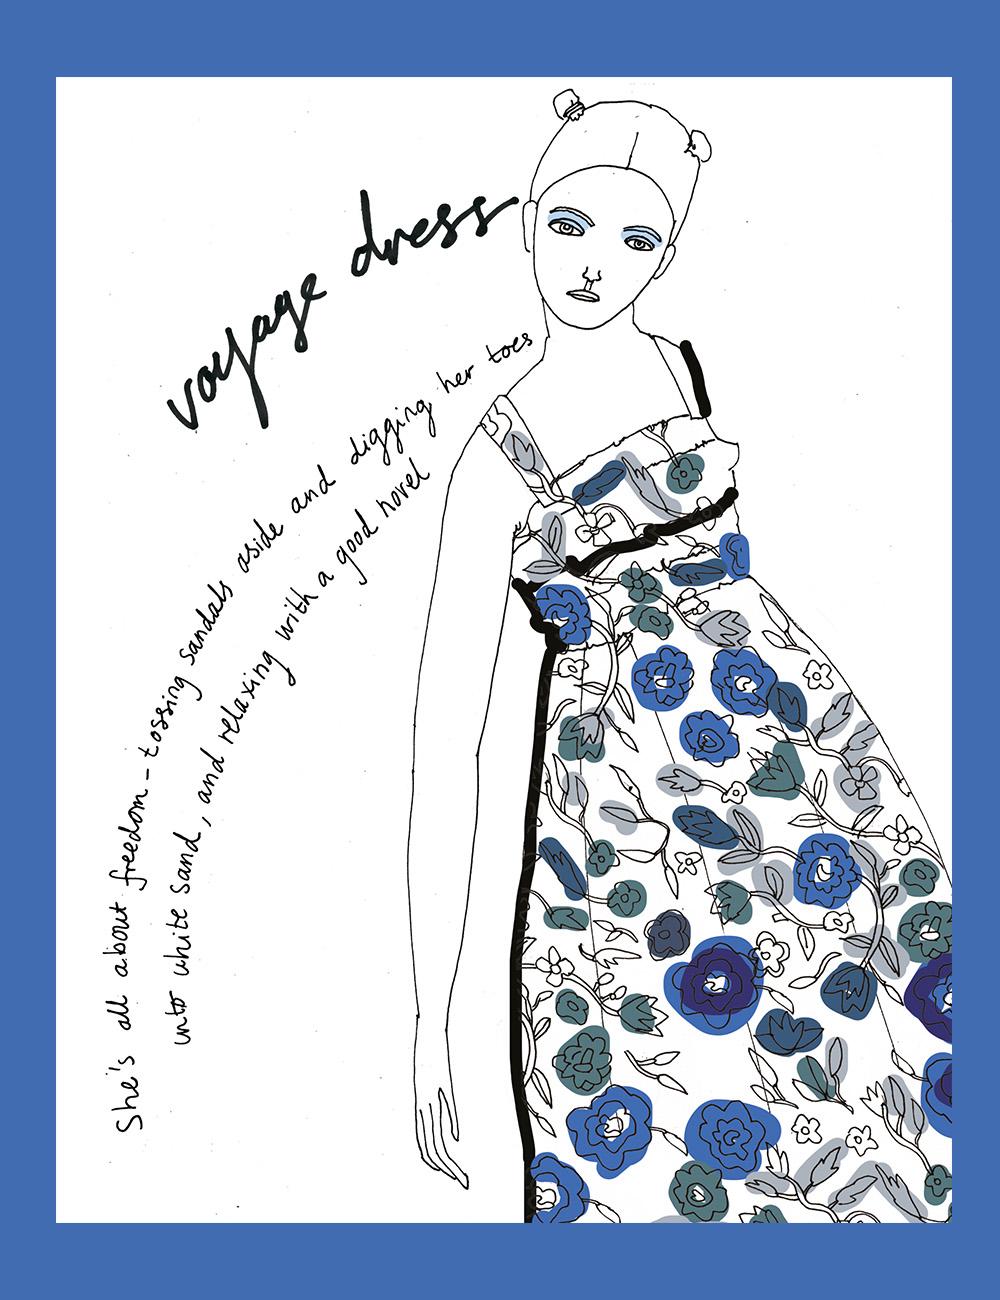 voyage dress
She's all about freedom - tossing sandals aside and digging her toes
into white sand, and relaxing with a good novel